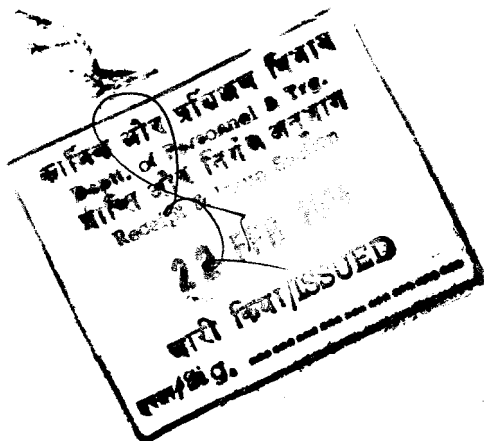 कार्मिक और प्रशिक्षण विभाग
Deptt. of Personnel & Trg.
प्राप्ति और निर्गम अनुभाग
Receipt & Issue Section
22
जारी किया/ISSUED
/Sig.